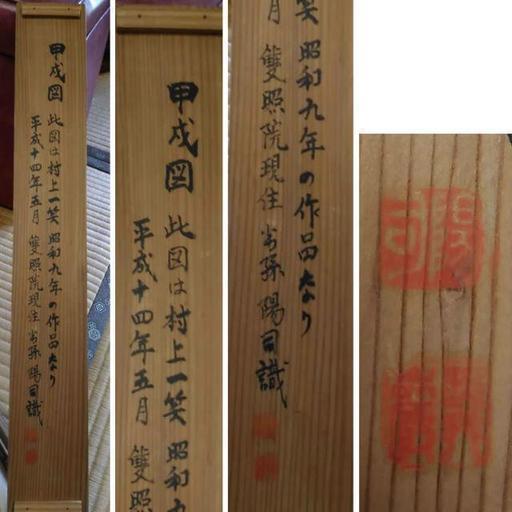 甲戌図
此図は村上一笑 昭和九年の作品なり
平成十四年五月 雙照院現住 劣孫 陽司識
甲戌図
此図は村上一笑 昭和九
平成十四年五月 雙照
笑 昭和九年の作品なり
月 雙照院現住 劣孫 陽司識